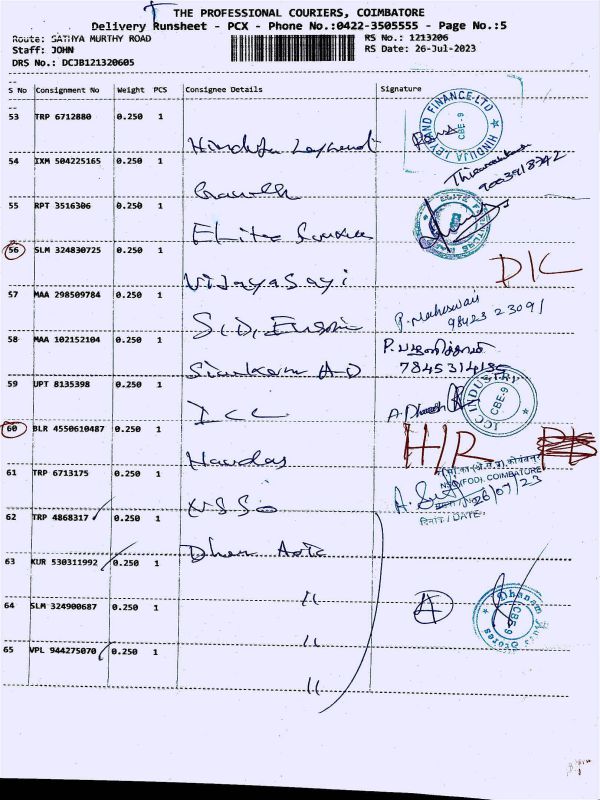 THE PROFESSIONAL COURIERS, COIMBATORE
Delivery Runsheet - PCX - Phone No.:0422-3505555 - Page No.:5
Route: SATHYA MURTHY ROAD
RS No.: 1213206
Staff: JOHN
RS Date: 26-Jul-2023
DRS No.: DCJB121320605
S No Consignment No Weight PCS Consignee Details Signature
53 TRP 6712880 0.250 1
HINDUJA LEYLAND FINANCE-LTD
CBE-9
54 IXM 504225165 0.250 1
9003918342
55 RPT 3516306 0.250 1
Elite
56 SLM 324830725 0.250 1 Vijaya Sayi D/C
57 MAA 298509784 0.250 1
P. Maheswari
98423 23091
58 MAA 102152104 0.250 1 A-D
7845314135
59 UPT 8135398 0.250 1 ICC
ICC INDUSTRY
CBE-9
60 BLR 4550610487 0.250 1 H/R
61 TRP 6713175 0.250 1 NSSO
COIMBATORE
26/07/23
दिनांक/DATE
62 TRP 4868317 0.250 1
63 KUR 530311992 0.250 1 "
64 SLM 324900687 0.250 1 "
A
Dhanam
Stores
CBE-9
65 VPL 944275070 0.250 1 "